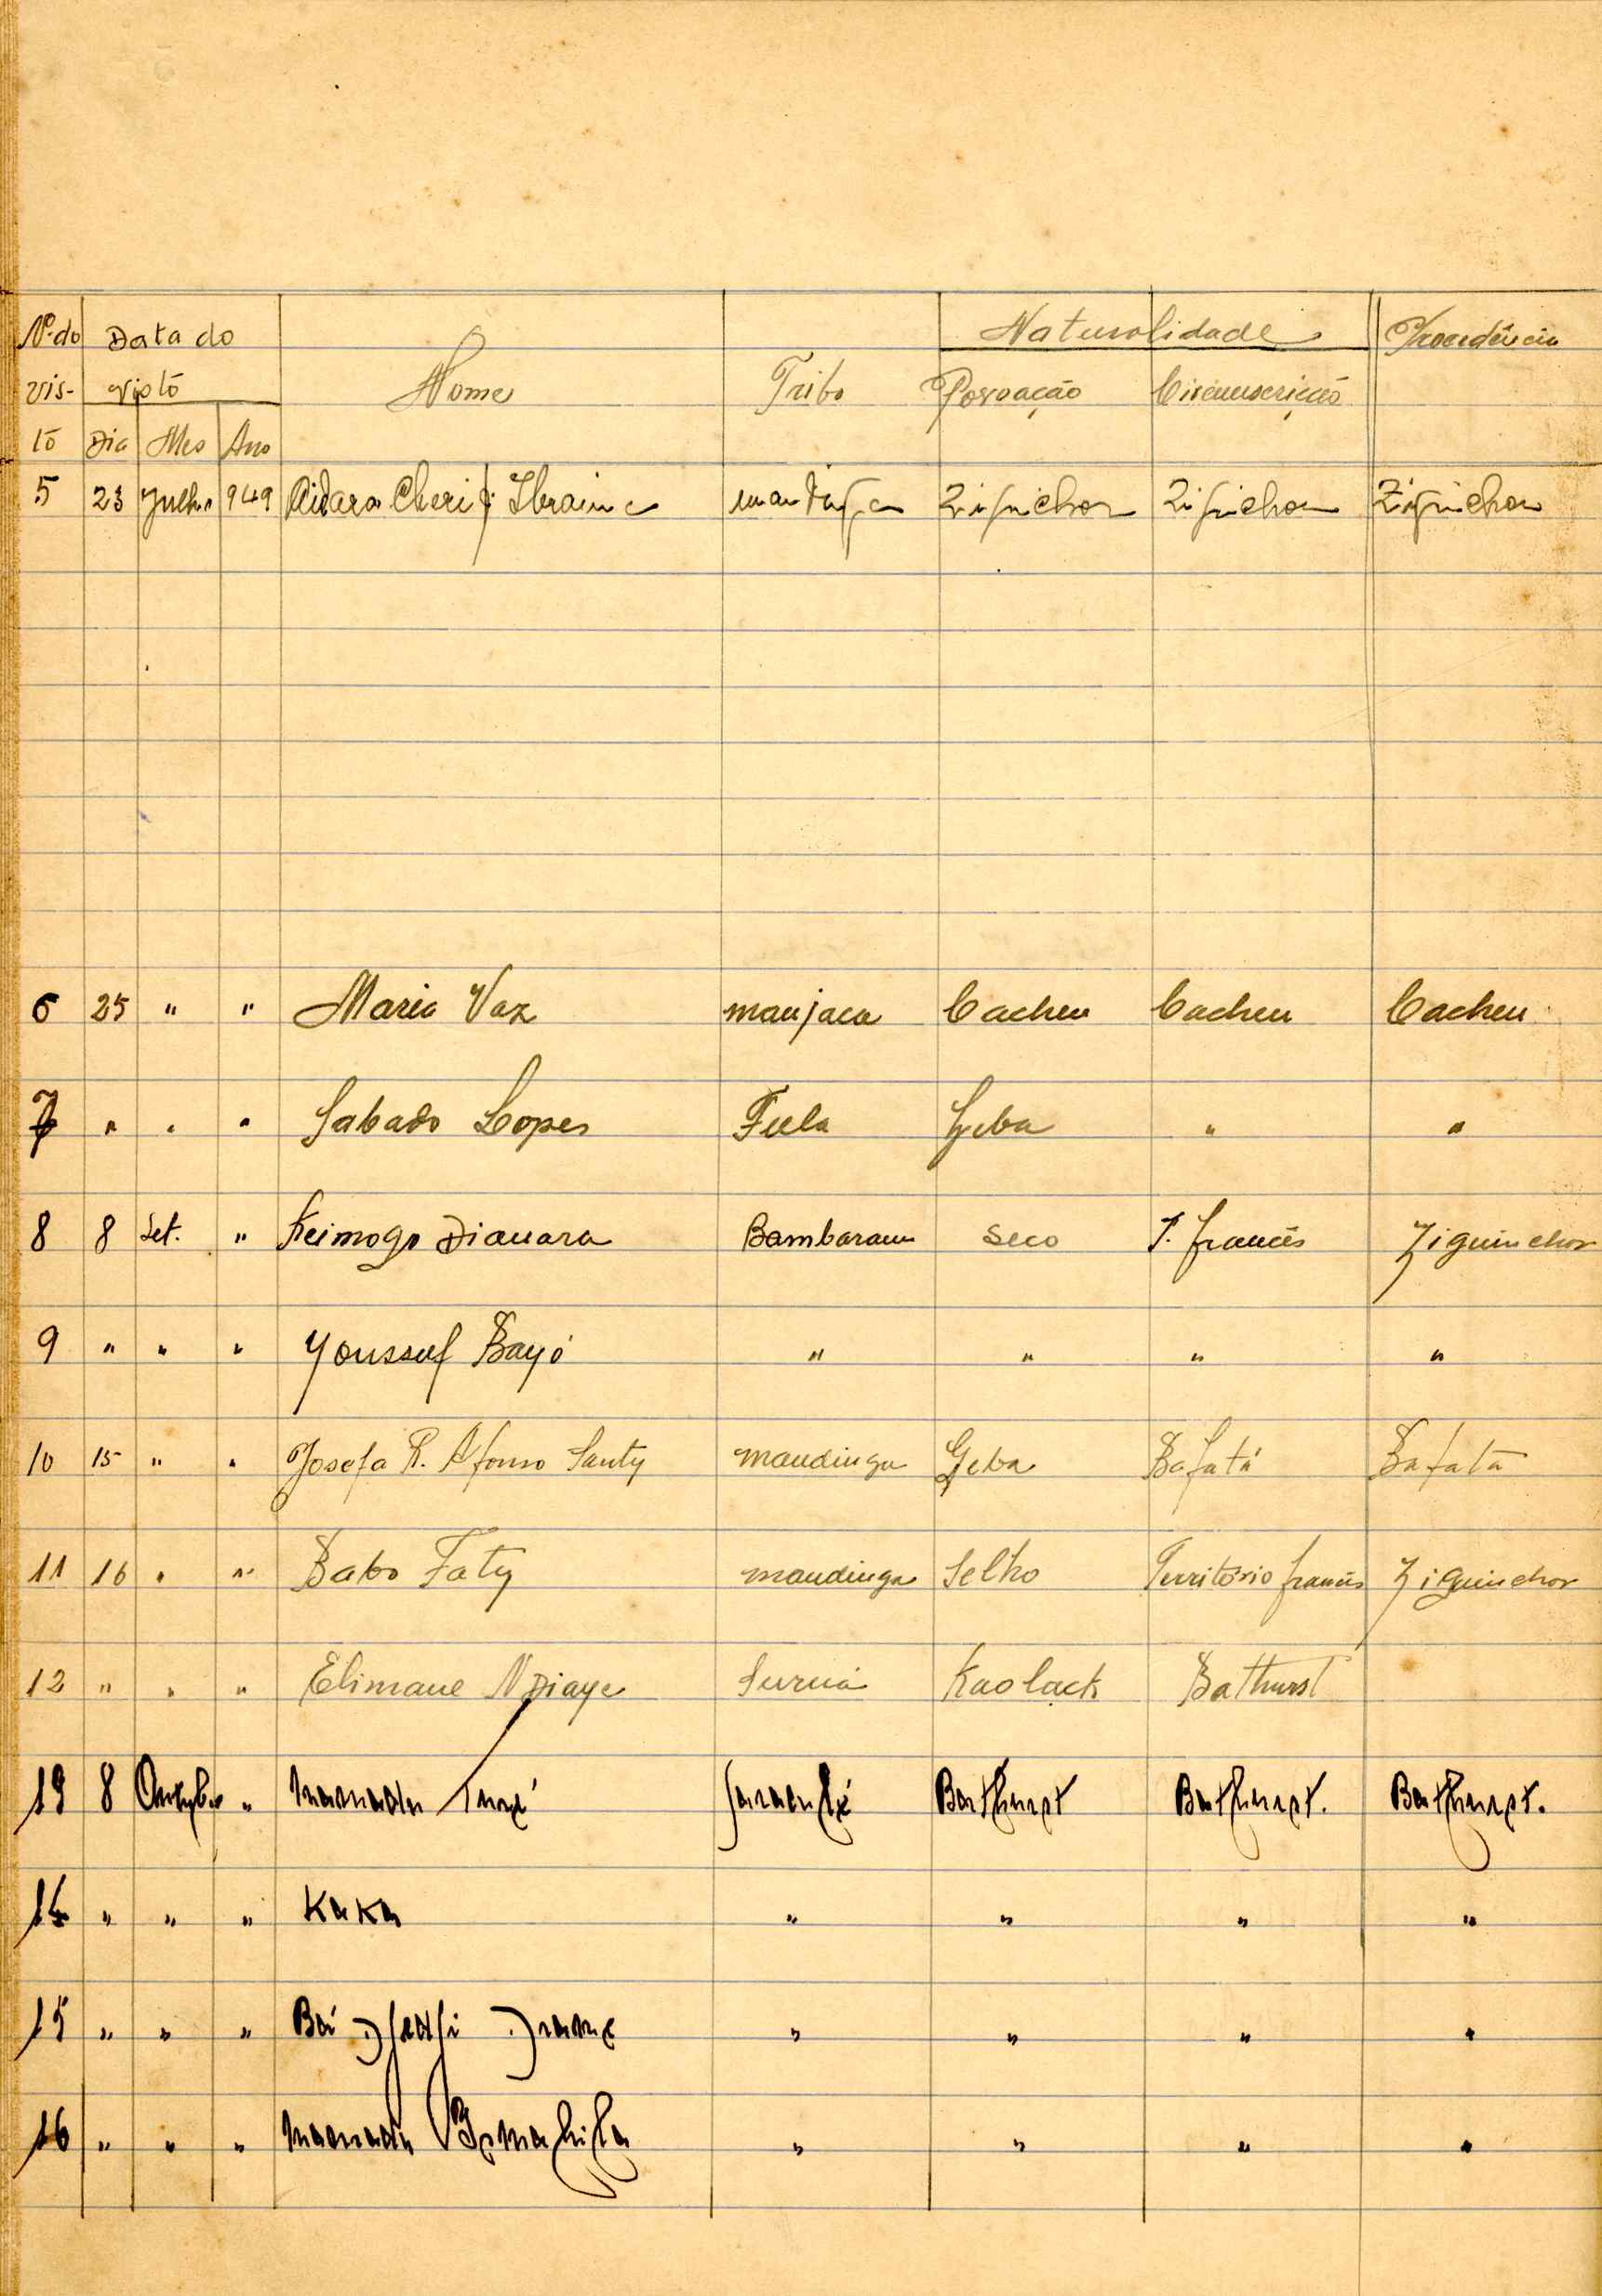 Nº do Data do Naturalidade Procedência
vis- visto Nome Tribo Povoação Circunscrição
to Dia Mes Ano
5 23 Julho 949 Aidara Cherif Ibraima mandinga Ziguichor Ziguichor Ziguichor
6 25 " " Maria Vaz manjaca Cacheu Cacheu Cacheu
7 " " " Sabado Lopes Fula Geba " "
8 8 Set. " Keimogo Dianara Bambaram Seco T. francês Ziguinchor
9 " " " Youssuf Bayó " " " "
10 15 " " Josefa R. Afonso Santy mandinga Geba Bafatá Bafatá
11 16 " " Babo Faty mandinga Selho Território francês Ziguinchor
12 " " " Elimane NDiaye Kaolack Bathurst
13 8 Outubro " Mamadu Turé Bathurst Bathurst. Bathurst.
14 " " " Kaka " " " "
15 " " " Bai " " " "
16 " " " Mamadu " " " "